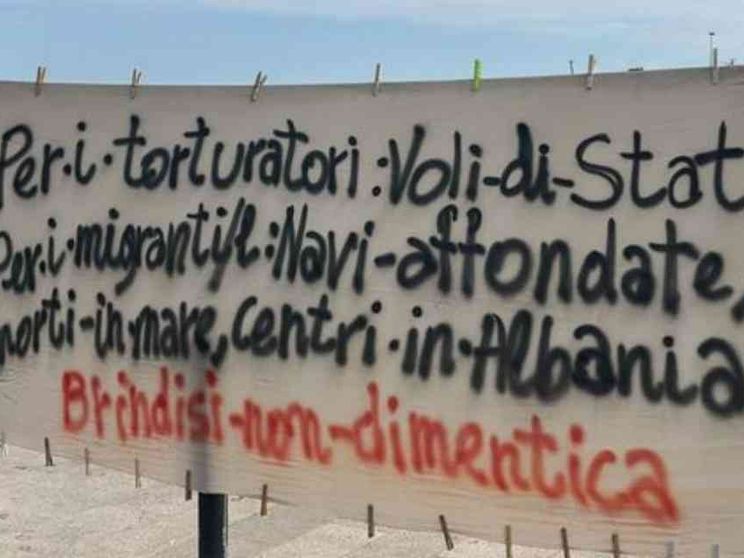 Per.i.torturatori:Voli-di-Stat
Per.i.migranti/e:Navi-affondate,
morti-in-mare,Centri.in.Albania
Brindisi-non-dimentica